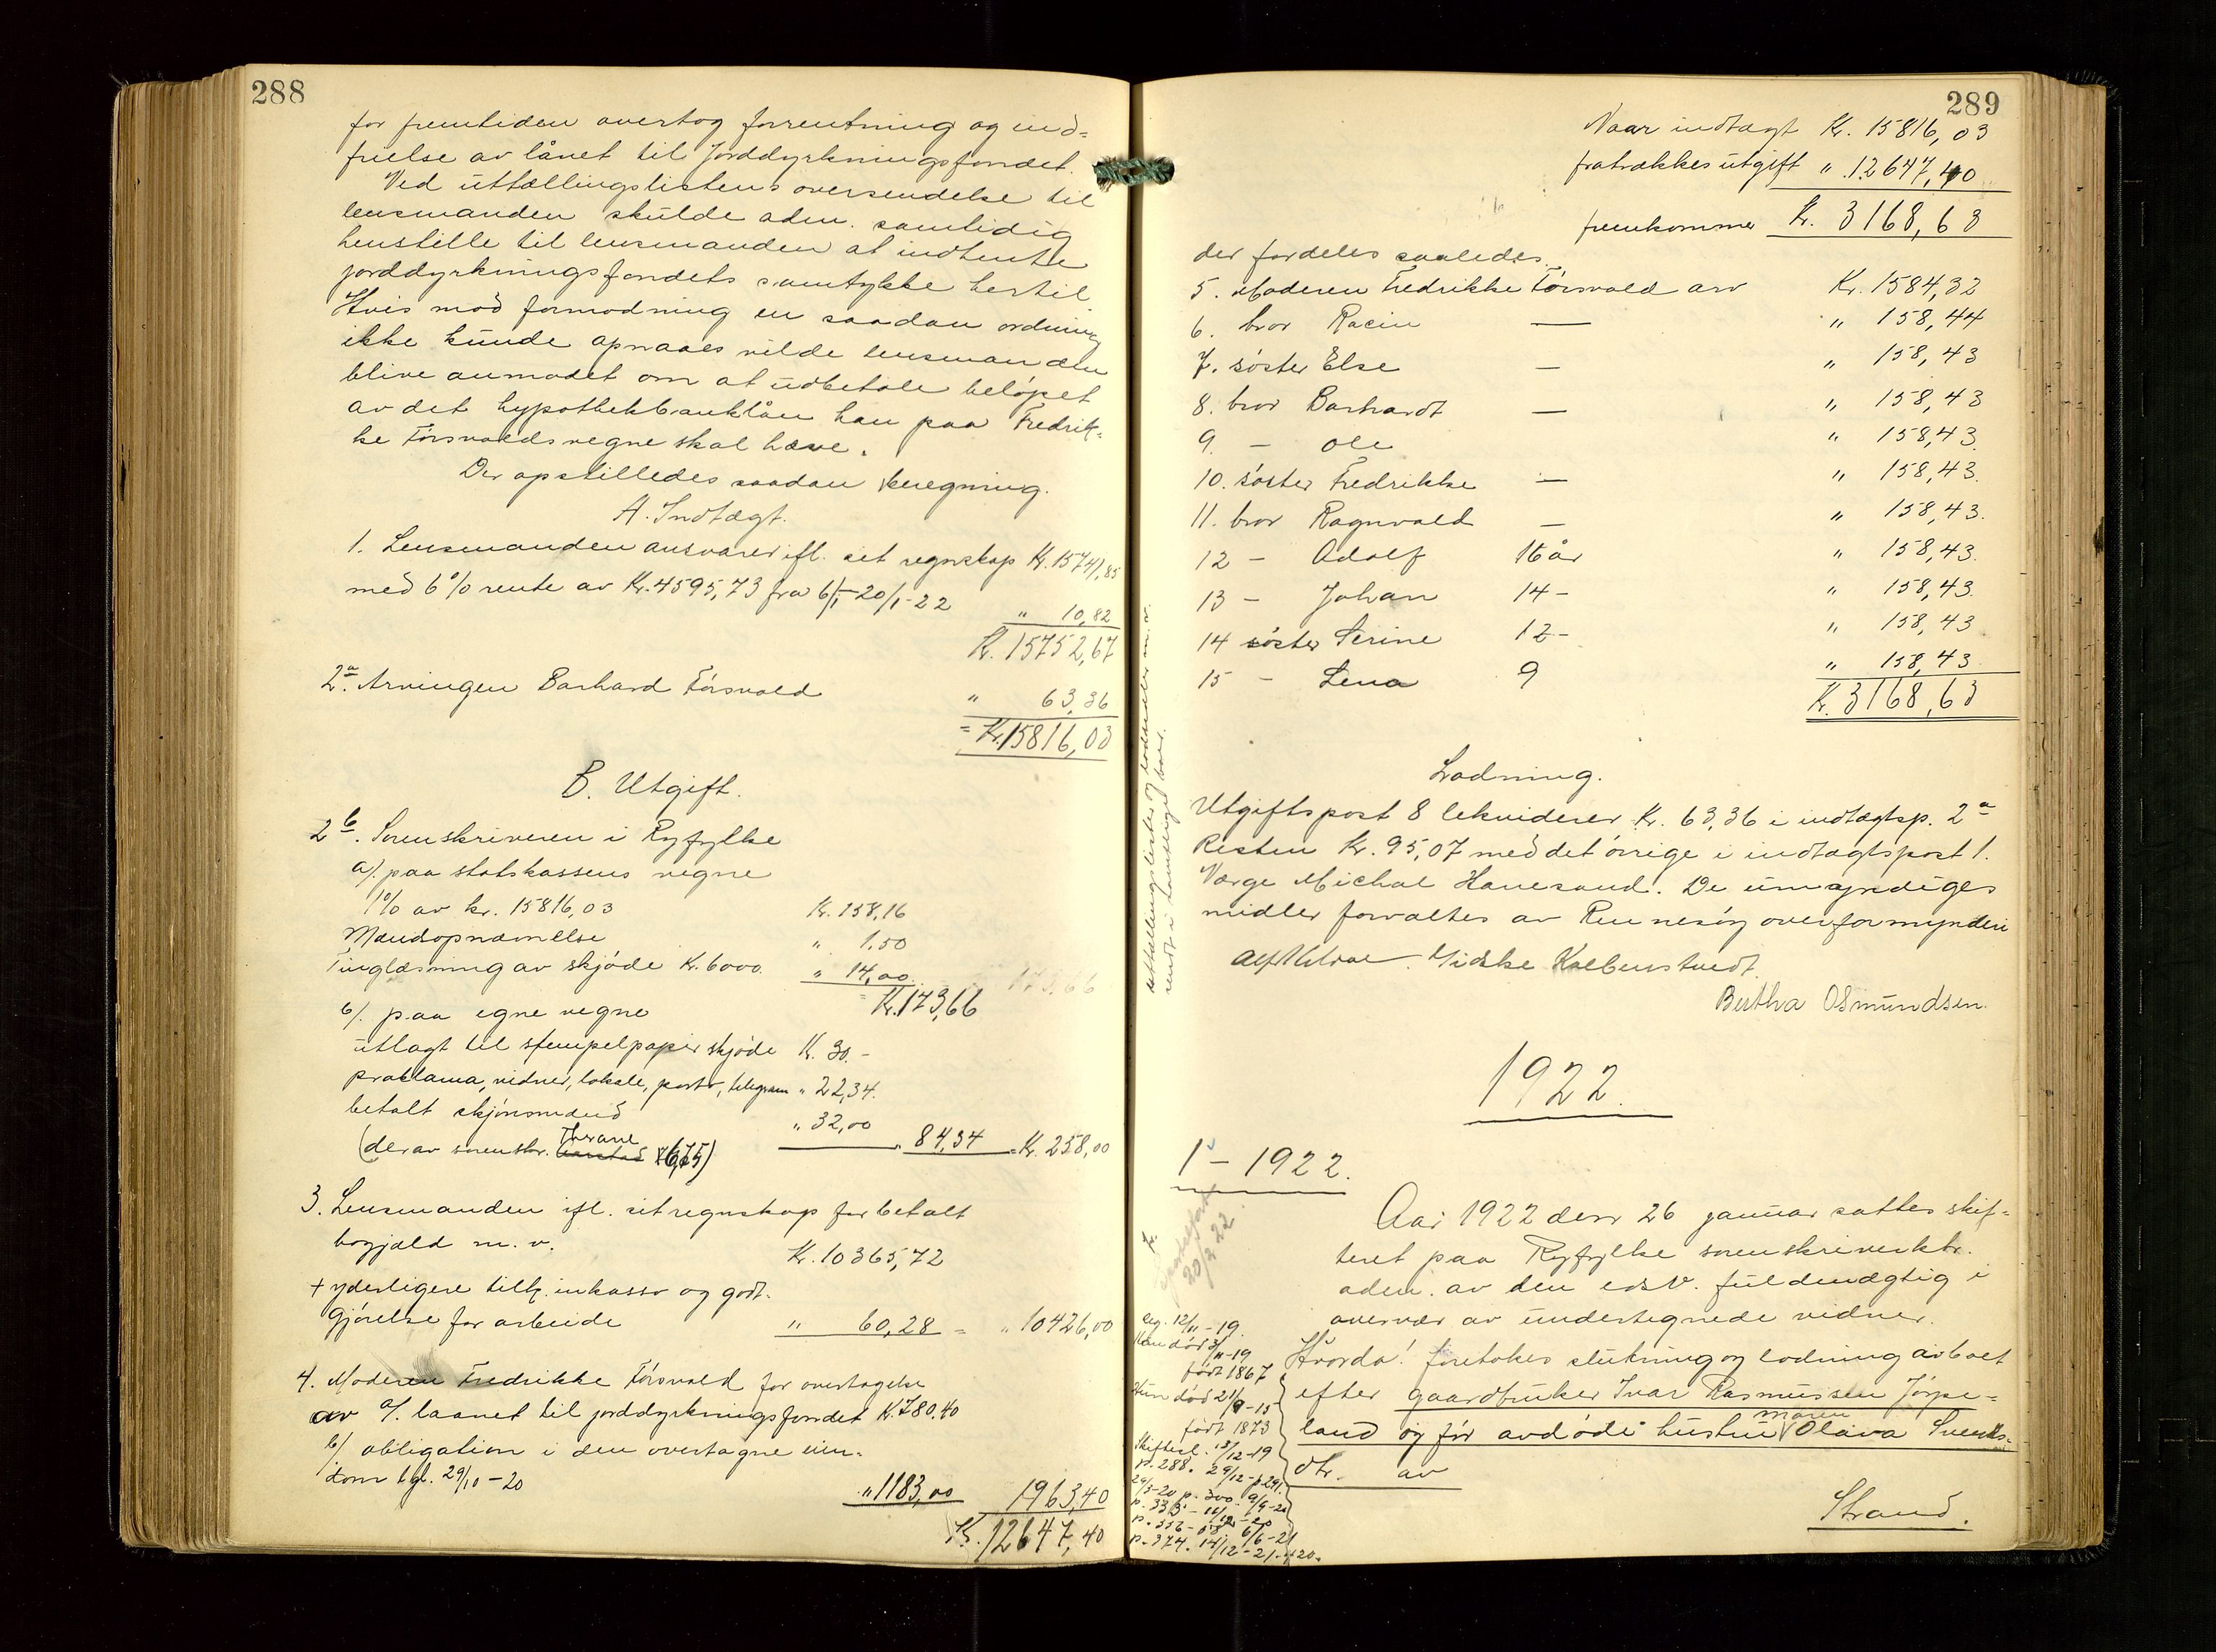 288
for fremtiden overtog forrentning og ind-
frielse av lånet til Jorddyrkningsfondet.
Ved uttællingslistens oversendelse til
lensmanden skulde adm. samtidig
henstille til lensmanden at indhente
jorddyrkningsfondets samtykke hertil
Hvis mod formodning en saadan ordning
ikke kunde opnaaes vilde lensmanden
blive anmodet om at udbetale beløpet
av det hypothekbanklån han paa Fredrik-
ke Førsvolds vegne skal hæve.
Der opstilledes saadan beregning.
A. Indtægt.
1. Lensmanden ansvarer ifl. sit regnskap Kr. 15741,85
med 6% rente av Kr. 4595,73 fra 6/1-20/1-22 " 10,82
Kr. 15752,67
2a. Arvingen Barhard Førsvold " 63,36
= Kr 15816,03
B. Utgift.
2b. Sorenskriveren i Ryfylke
a/. paa statskassens vegne
1% av kr. 15816,03 Kr. 158,16
Mændsopnævnelse " 1.50
Tinglæsning av skjøde Kr. 6000. " 14,00
Kr. 173,66
b/. paa egne vegne
utlagt til stempelpapir skjøde Kr. 30.-
proklama, vidner, lokale, porto, telegram " 22,34.
betalt skjønsmænd " 32,00
" 84,34 = Kr. 258,00
(derav sorenskr. Therane 6,75)
3. Lensmanden ifl. sit regnskap for betalt
bogjæld m. v. Kr. 10365,72
+ yderligere tillæg inkasso og godt-
gjørelse for arbeide " 60,28 = " 10426,00
4. Moderen Fredrikke Førsvold for overtagelse
av a/. laanet til jorddyrkningsfondet Kr. 780.40
b/ obligation i den overtagne eien-
dom tgl. 29/10-20 " 1183,00 1963,40
Kr. 12647,40
289
Naar indtægt Kr. 15816,03
fratrækkes utgift " 12647,40
fremkommer Kr. 3168,63
der fordeles saaledes
5. Moderen Fredrikke Førsvold arv Kr. 1584,32
6. bror Racin — " 158,44
7. søster Else — " 158,43
8. bror Barhardt — " 158,43
9. - Ole " 158,43
10. søster Fredrikke — " 158,43.
11. bror Ragnvald — " 158,43.
12 - Adolf 16 år " 158,43.
13 - Johan 14 - " 158,43.
14 søster Serine 12 - " 158,43
15 - Lena 9 " 158,43
Kr. 3168,63
Lodning.
Utgiftspost 8 lekviderer Kr. 63,36 i indtægtsp. 2a
Resten Kr. 95,07 med det øvrige i indtægtspost 1.
Værge Michal Hanesand. De umyndiges
midler forvaltes av Rennesøy overformynderi
Giske Kolbenstvedt.
Bertha Osmundsen.
1922.
1 - 1922.
Aar 1922 den 26 januar sattes skif-
teret paa Ryfylke sorenskriverktr.
adm. av den edsv. fuldmægtig i
overvær av undertegnede vidner.
Hvorda! foretokes slutning og lodning av boet
efter gaardbruker Ivar Rasmussen Jørpe-
land og før avdøde hustru Maren Olava Svends-
dtr. av
Strand.
20/2 22
Reg. 12/11-19.
Han død 3/11-19
født 1867
Hun død 21/9-15
født 1873
Skiftesl. 13/12-19
p. 288. 29/12-p. 291.